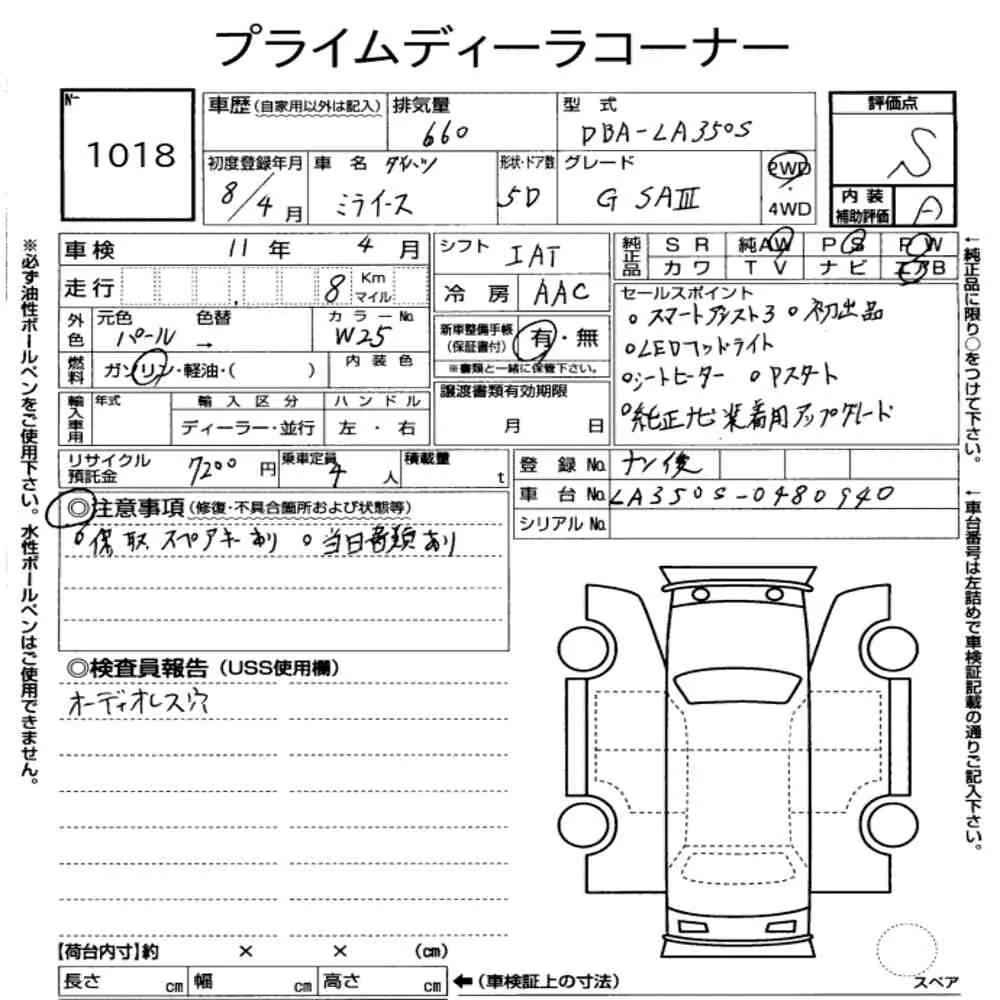 プライムディーラコーナー
№
1018
車歴(自家用以外は記入)
排気量
660
型 式
DBA-LA350S
評価点
S
初度登録年月
8/4月
車 名 ダイハツ
ミライース
形状・ドア数
5D
グレード
G SAⅢ
2WD
4WD
内装
補助評価
A
車検 11年 4月
走行 8 Km
マイル
シフト IAT
冷房 AAC
純正品
SR 純AW PS PW
カワ TV ナビ エアB
外色
元色 パール 色替 →
カラーNo W25
燃料
ガソリン・軽油・( )
内装色
新車整備手帳
(保証書付)
有・無
※書類と一緒に保管下さい。
セールスポイント
○スマートアシスト3 ○初出品
○LEDヘッドライト
○シートヒーター ○Pスタート
○純正ナビ装着用アップグレード
輸入車用
年式
輸入区分
ディーラー・並行
ハンドル
左・右
譲渡書類有効期限
月 日
リサイクル
預託金
7200円
乗車定員
4人
積載量
t
登録No. ナシ後
車台No. LA350S-0480940
シリアルNo.
◎注意事項(修復・不具合箇所および状態等)
○保取スペアキーあり ○当日書類あり
◎検査員報告(USS使用欄)
オーディオレス穴
【荷台内寸】約 × × (cm)
長さ cm 幅 cm 高さ cm ←(車検証上の寸法)
スペア
※必ず油性ボールペンをご使用下さい。水性ボールペンはご使用できません。
←純正品に限り○をつけて下さい。
←車台番号は左詰めで車検証記載の通りご記入下さい。